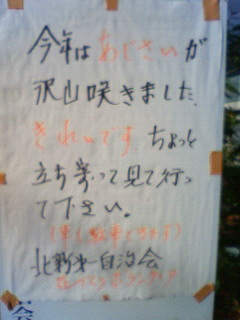 今年はあじさいが
沢山咲きました。
きれいです ちょっと
立ち寄って見て行っ
て下さい。
(車も駐車できます)
自治会
会